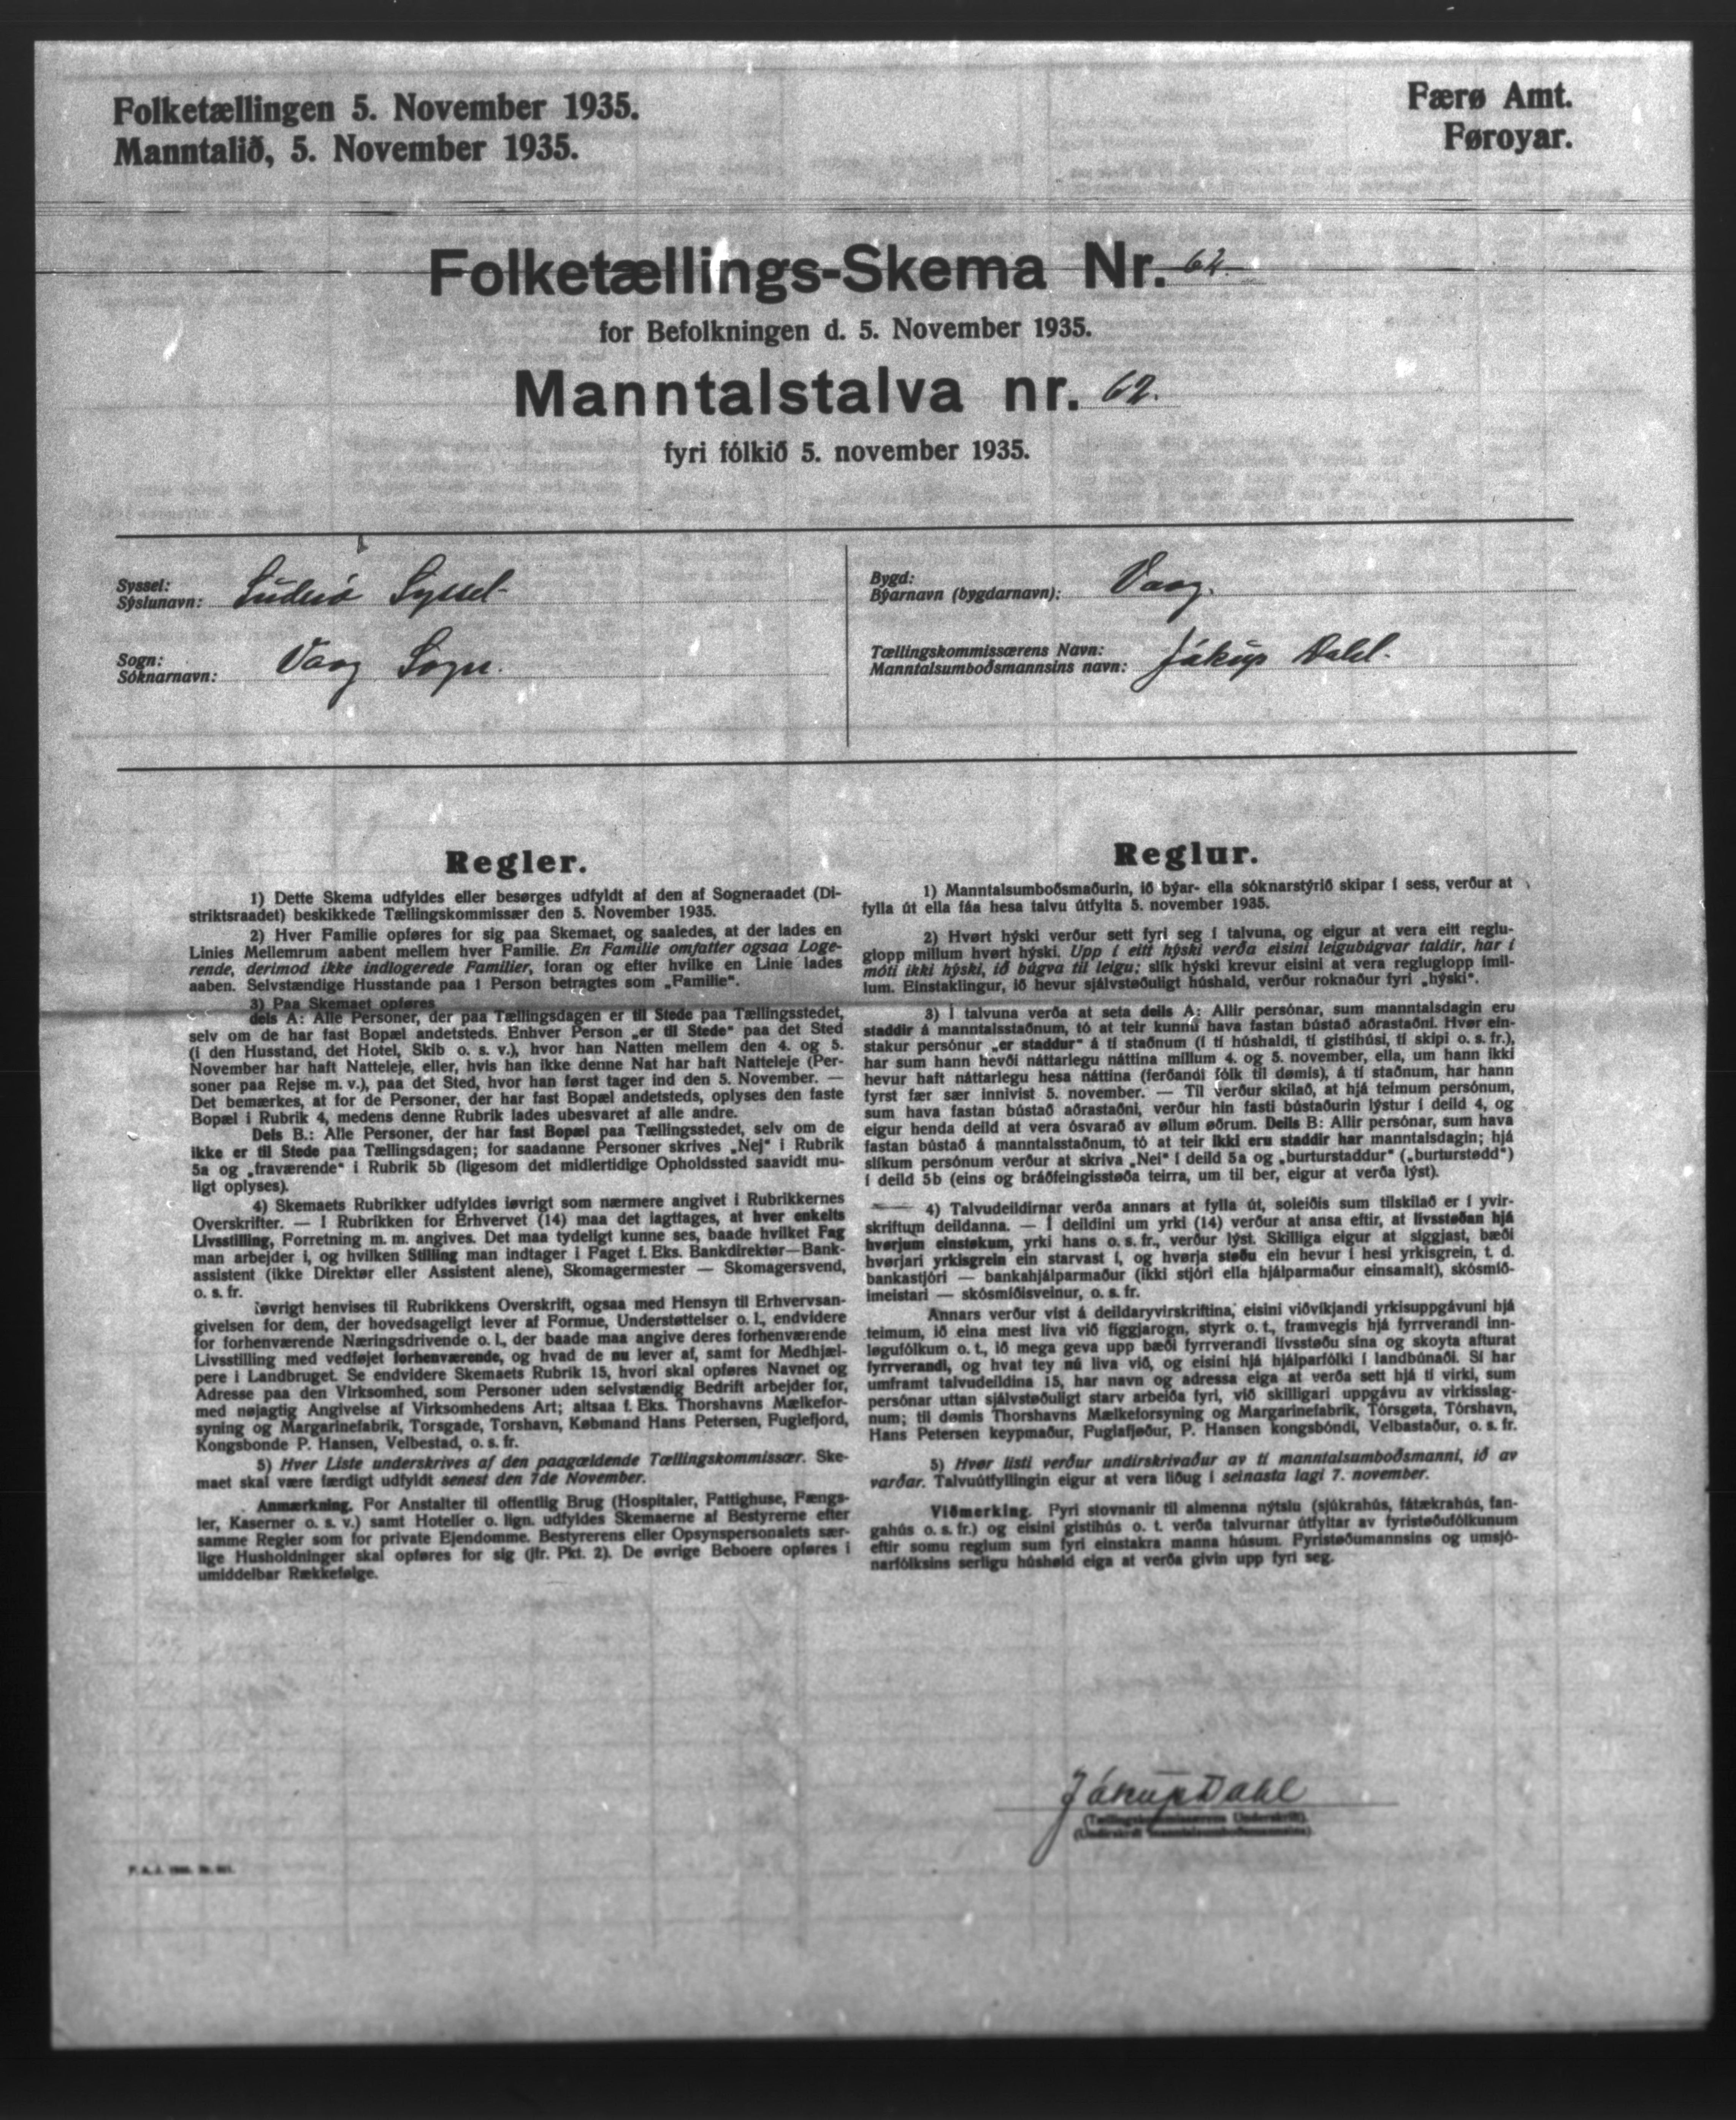 Folketællingen 5. November 1935.
Manntalið, 5. November 1935.
Færø Amt.
Føroyar.
Folketællings-Skema Nr. 62.
for Befolkningen d. 5. November 1935.
Manntalstalva nr. 62.
fyri fólkið 5. november 1935.
Syssel:
Sýslunavn: Suderø Syssel
Sogn:
Sóknarnavn: Vaag Sogn.
Bygd:
Býarnavn (bygdarnavn): Vaag.
Tællingskommissærens Navn:
Manntalsumboðsmannsins navn: Jákup Dahl.
Regler.
1) Dette Skema udfyldes eller besørges udfyldt af den af Sogneraadet (Di-
striktsraadet) beskikkede Tællingskommissær den 5. November 1935.
2) Hver Familie opføres for sig paa Skemaet, og saaledes, at der lades en
Linies Mellemrum aabent mellem hver Familie. En Familie omfatter ogsaa Loge-
rende, derimod ikke indlogerede Familier, foran og efter hvilke en Linie lades
aaben. Selvstændige Husstande paa 1 Person betragtes som „Familie“.
3) Paa Skemaet opføres
dels A: Alle Personer, der paa Tællingsdagen er til Stede paa Tællingsstedet,
selv om de har fast Bopæl andetsteds. Enhver Person „er til Stede“ paa det Sted
(i den Husstand, det Hotel, Skib o. s. v.), hvor han Natten mellem den 4. og 5.
November har haft Natteleje, eller, hvis han ikke denne Nat har haft Natteleje (Per-
soner paa Rejse m. v.), paa det Sted, hvor han først tager ind den 5. November. —
Det bemærkes, at for de Personer, der har fast Bopæl andetsteds, oplyses den faste
Bopæl i Rubrik 4, medens denne Rubrik lades ubesvaret af alle andre.
Dels B.: Alle Personer, der har fast Bopæl paa Tællingsstedet, selv om de
ikke er til Stede paa Tællingsdagen; for saadanne Personer skrives „Nej“ i Rubrik
5a og „fraværende“ i Rubrik 5b (ligesom det midlertidige Opholdssted saavidt mu-
ligt oplyses).
4) Skemaets Rubrikker udfyldes iøvrigt som nærmere angivet i Rubrikkernes
Overskrifter. — I Rubrikken for Erhvervet (14) maa det iagttages, at hver enkelts
Livsstilling, Forretning m. m. angives. Det maa tydeligt kunne ses, baade hvilket Fag
man arbejder i, og hvilken Stilling man indtager i Faget f. Eks. Bankdirektør—Bank-
assistent (ikke Direktør eller Assistent alene), Skomagermester — Skomagersvend,
o. s. fr.
Iøvrigt henvises til Rubrikkens Overskrift, ogsaa med Hensyn til Erhvervsan-
givelsen for dem, der hovedsageligt lever af Formue, Understøttelser o. l., endvidere
for forhenværende Næringsdrivende o. l., der baade maa angive deres forhenværende
Livsstilling med vedføjet forhenværende, og hvad de nu lever af, samt for Medhjæl-
pere i Landbruget. Se endvidere Skemaets Rubrik 15, hvori skal opføres Navnet og
Adresse paa den Virksomhed, som Personer uden selvstændig Bedrift arbejder for,
med nøjagtig Angivelse af Virksomhedens Art; altsaa f. Eks. Thorshavns Mælkefor-
syning og Margarinefabrik, Torsgade, Torshavn, Købmand Hans Petersen, Fuglefjord,
Kongsbonde P. Hansen, Velbestad, o. s. fr.
5) Hver Liste underskrives af den paagældende Tællingskommissær. Ske-
maet skal være færdigt udfyldt senest den 7de November.
Anmærkning. For Anstalter til offentlig Brug (Hospitaler, Fattighuse, Fængs-
ler, Kaserner o. s. v.) samt Hoteller o. lign. udfyldes Skemaerne af Bestyrerne efter
samme Regler som for private Ejendomme. Bestyrerens eller Opsynspersonalets sær-
lige Husholdninger skal opføres for sig (jfr. Pkt. 2). De øvrige Beboere opføres i
umiddelbar Rækkefølge.
Reglur.
1) Manntalsumboðsmaðurin, ið býar- ella sóknarstýrið skipar í sess, verður at
fylla út ella fáa hesa talvu útfylta 5. november 1935.
2) Hvørt hýski verður sett fyri seg í talvuna, og eigur at vera eitt reglu-
glopp millum hvørt hýski. Upp í eitt hýski verða eisini leigubúgvar taldir, har í
móti ikki hýski, ið búgva til leigu; slík hýski krevur eisini at vera regluglopp imil-
lum. Einstaklingur, ið hevur sjálvstøðuligt húshald, verður roknaður fyri „hýski“.
3) Í talvuna verða at seta deils A: Allir persónar, sum manntalsdagin eru
staddir á manntalsstaðnum, tó at teir kunnu hava fastan bústað aðrastaðni. Hvør ein-
stakur persónur „er staddur“ á tí staðnum (í tí húshaldi, tí gistihúsi, tí skipi o. s. fr.),
har sum hann hevði náttarlegu náttina millum 4. og 5. november, ella, um hann ikki
hevur haft náttarlegu hesa náttina (ferðandi fólk til dømis), á tí staðnum, har hann
fyrst fær sær innivist 5. november. — Til verður skilað, at hjá teimum persónum,
sum hava fastan bústað aðrastaðni, verður hin fasti bústaðurin lýstur í deild 4, og
eigur henda deild at vera ósvarað av øllum øðrum. Deils B: Allir persónar, sum hava
fastan bústað á manntalsstaðnum, tó at teir ikki eru staddir har manntalsdagin; hjá
slíkum persónum verður at skriva „Nei“ í deild 5a og „burturstaddur“ („burturstødd“)
í deild 5b (eins og bráðfeingisstøða teirra, um til ber, eigur at verða lýst).
4) Talvudeildirnar verða annars at fylla út, soleiðis sum tilskilað er í yvir-
skriftum deildanna. — Í deildini um yrki (14) verður at ansa eftir, at livsstøðan hjá
hvørjum einstøkum, yrki hans o. s. fr., verður lýst. Skilliga eigur at siggjast, bæði
hvørjari yrkisgrein ein starvast í, og hvørja støðu ein hevur í hesi yrkisgrein, t. d.
bankastjóri — bankahjálparmaður (ikki stjóri ella hjálparmaður einsamalt), skósmið-
imeistari — skósmiðisveinur, o. s. fr.
Annars verður víst á deildaryvirskriftina, eisini viðvíkjandi yrkisuppgávuni hjá
teimum, ið eina mest liva við figgjarogn, styrk o. t., framvegis hjá fyrrverandi inn-
løgufólkum o. t., ið mega geva upp bæði fyrrverandi livsstøðu sína og skoyta afturat
fyrrverandi, og hvat tey nú liva við, og eisini hjá hjálparfólki í landbúnaði. Sí har
umframt talvudeildina 15, har navn og adressa eiga at verða sett hjá tí virki, sum
persónar uttan sjálvstøðuligt starv arbeiða fyri, við skilligari uppgávu av virkisslag-
num; til dømis Thorshavns Mælkeforsyning og Margarinefabrik, Tórsgøta, Tórshavn,
Hans Petersen keypmaður, Fuglafjøður, P. Hansen kongsbóndi, Velbastaður, o. s. fr.
5) Hvør listi verður undirskrivaður av tí manntalsumboðsmanni, ið av
varðar. Talvuútfyllingin eigur at vera liðug í seinasta lagi 7. november.
Viðmerking. Fyri stovnanir til almenna nýtslu (sjúkrahús, fátækrahús, fan-
gahús o. s. fr.) og eisini gistihús o. t. verða talvurnar útfyltar av fyristøðufólkunum
eftir somu reglum sum fyri einstakra manna húsum. Fyristøðumannsins og umsjó-
narfólksins serligu húshald eiga at verða givin upp fyri seg.
Jákup Dahl
(Tællingskommissærens Underskrift).
(Undirskrift manntalsumboðsmannsins)